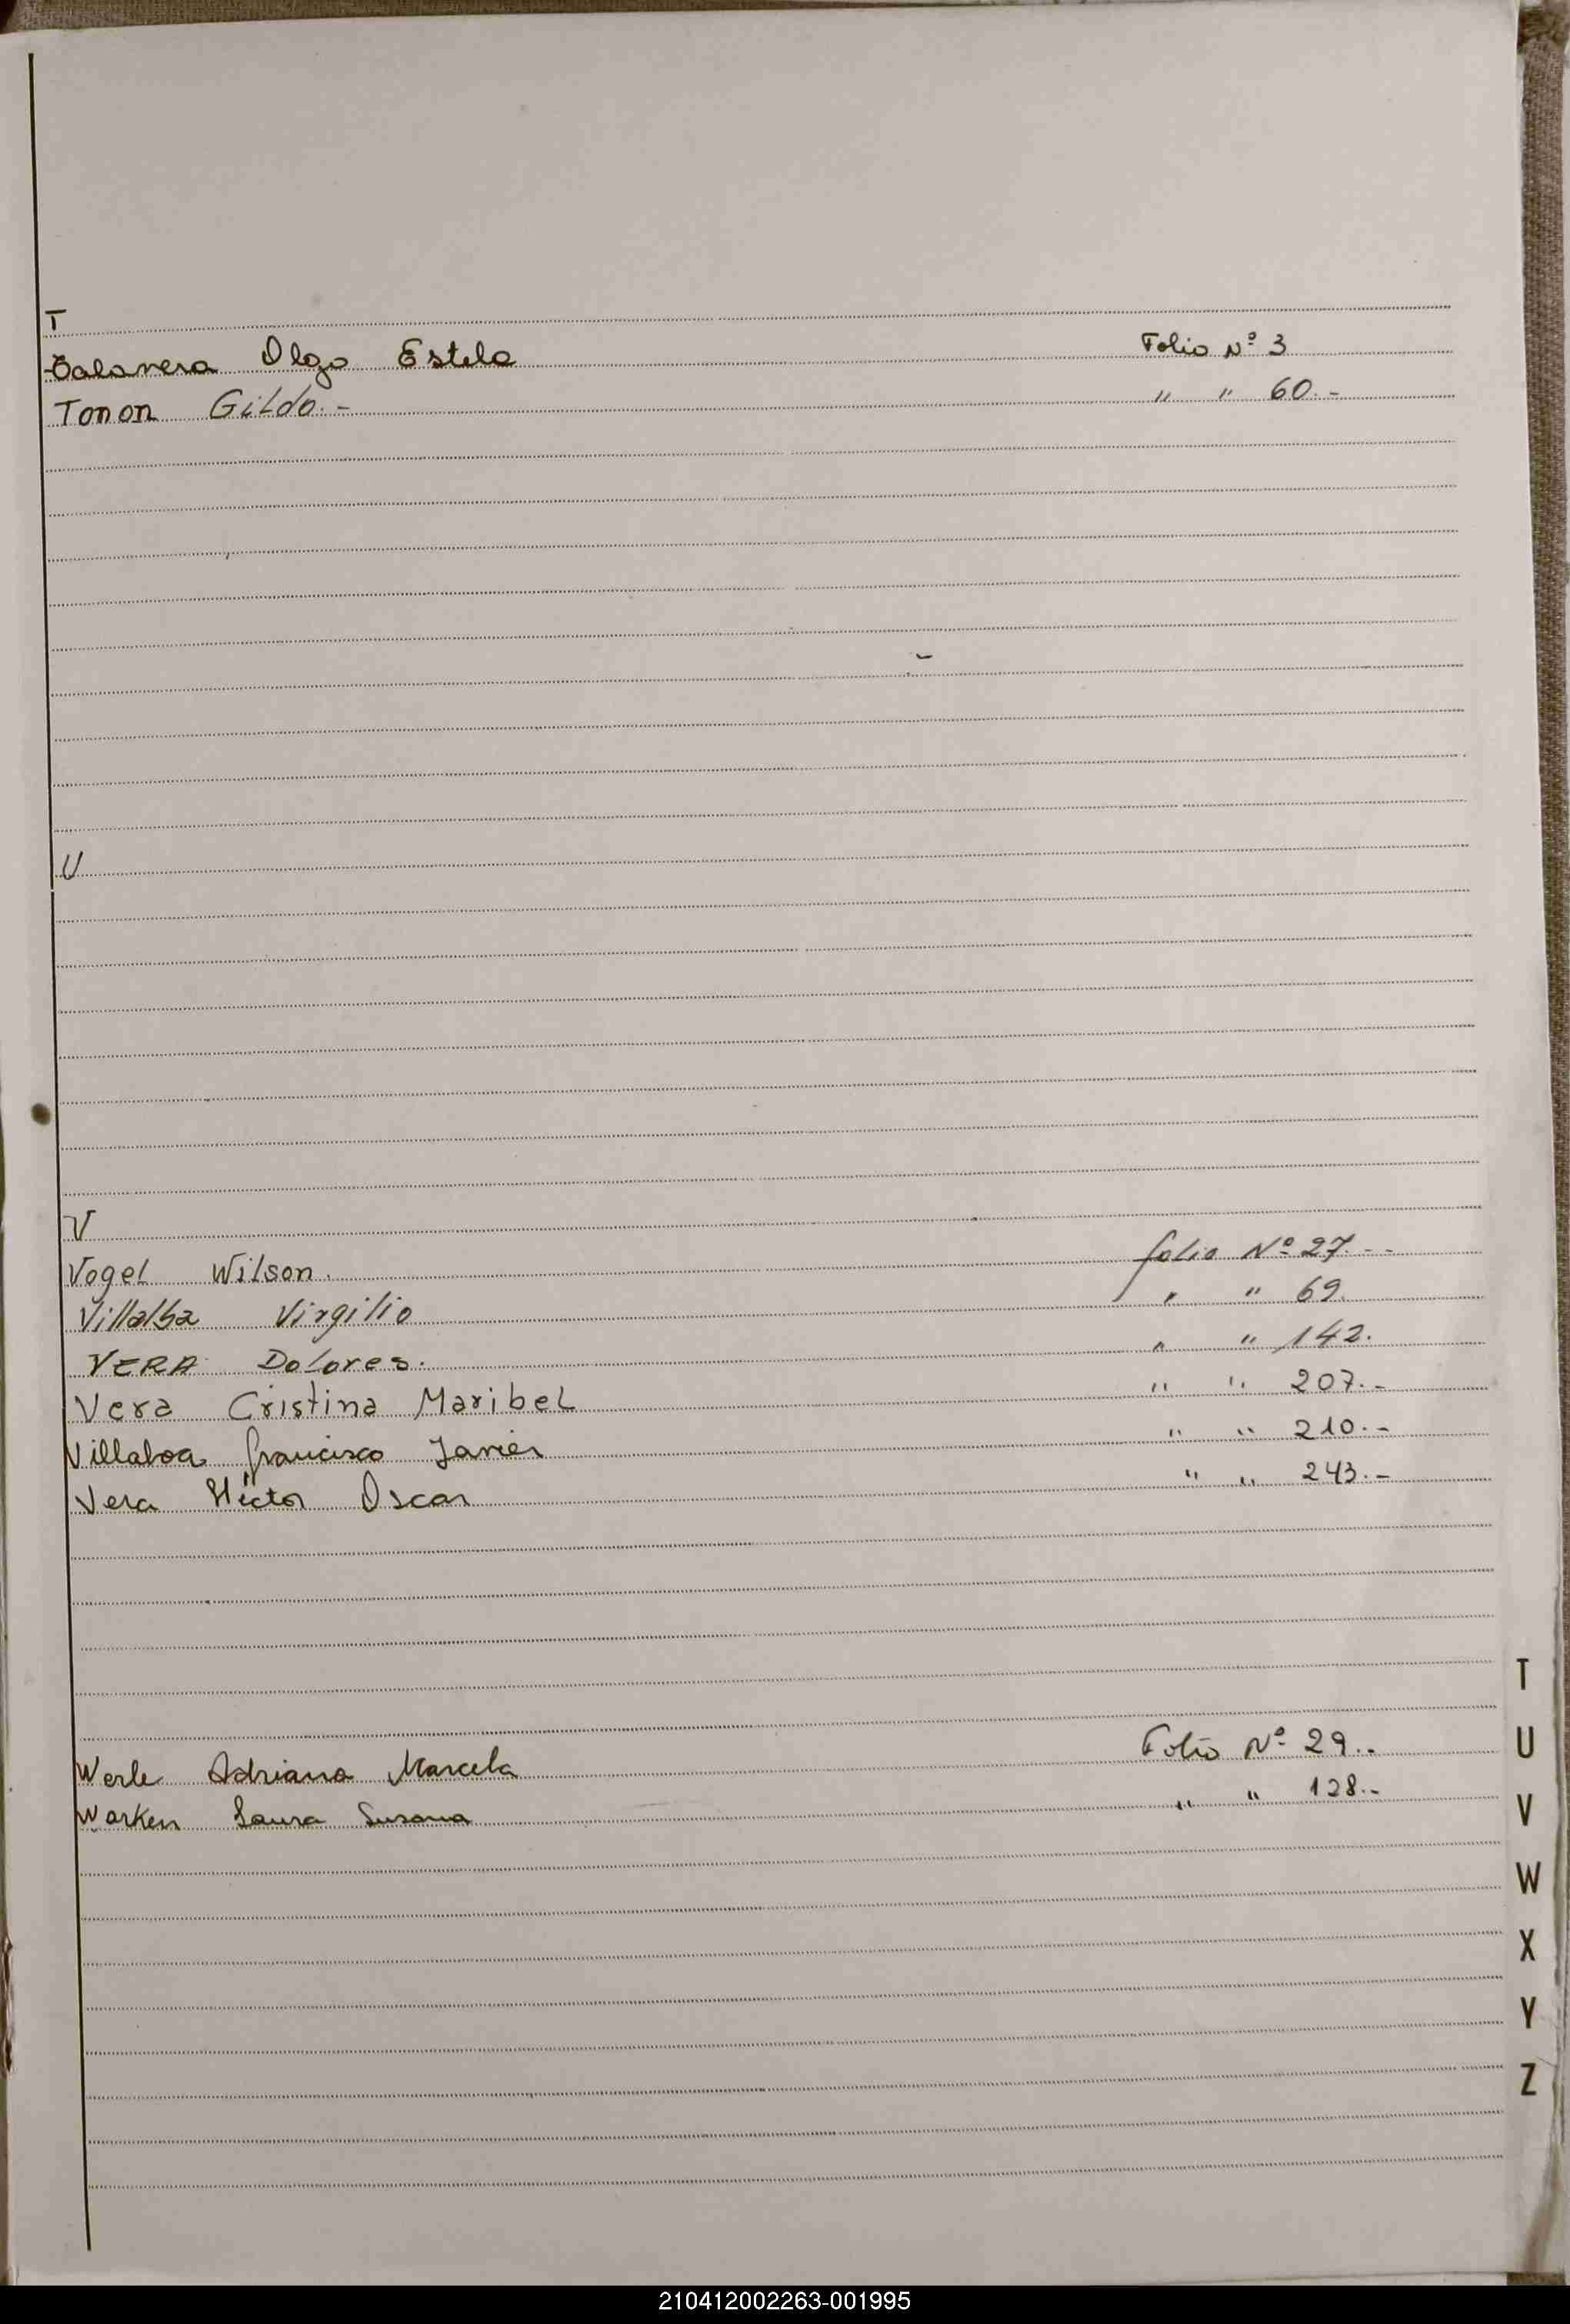 T
Talavera Olga Estela Folio Nº 3
Tonon Gildo.- " " 60.-
U
V
Vogel Wilson. folio Nº 27.--
Villalba Virgilio " " 69.
VERA Dolores. " " 142.
Vera Cristina Maribel " " 207.-
Villaboa francisco Javier " " 210.-
Vera Héctor Oscar " " 243.-
Werle Adriana Marcela Folio Nº 29..
Warken Laura Susana " " 128.-
T
U
V
W
X
Y
Z
210412002263-001995